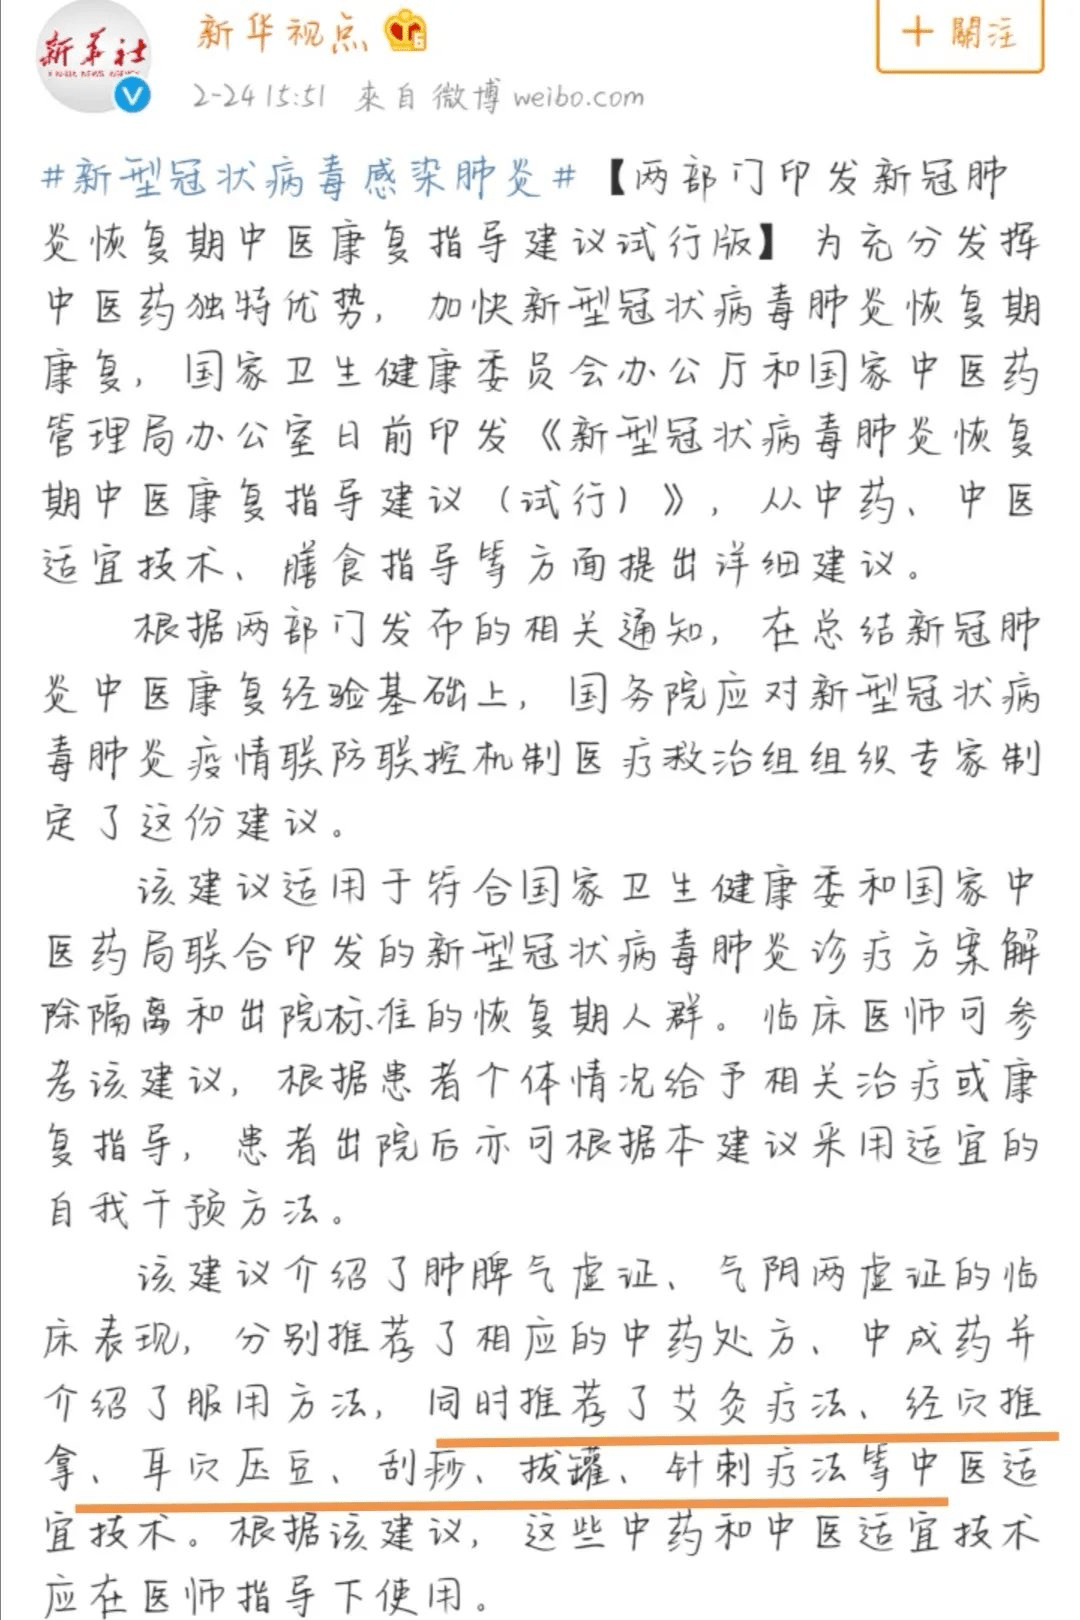 新华社
XINHUA NEWS AGENCY
新华视点
+ 關注
2-24 15:51 來自 微博 weibo.com
#新型冠状病毒感染肺炎#【两部门印发新冠肺
炎恢复期中医康复指导建议试行版】为充分发挥
中医药独特优势，加快新型冠状病毒肺炎恢复期
康复，国家卫生健康委员会办公厅和国家中医药
管理局办公室日前印发《新型冠状病毒肺炎恢复
期中医康复指导建议（试行）》，从中药、中医
适宜技术、膳食指导等方面提出详细建议。
根据两部门发布的相关通知，在总结新冠肺
炎中医康复经验基础上，国务院应对新型冠状病
毒肺炎疫情联防联控机制医疗救治组组织专家制
定了这份建议。
该建议适用于符合国家卫生健康委和国家中
医药局联合印发的新型冠状病毒肺炎诊疗方案解
除隔离和出院标准的恢复期人群。临床医师可参
考该建议，根据患者个体情况给予相关治疗或康
复指导，患者出院后亦可根据本建议采用适宜的
自我干预方法。
该建议介绍了肺脾气虚证、气阴两虚证的临
床表现，分别推荐了相应的中药处方、中成药并
介绍了服用方法，同时推荐了艾灸疗法、经穴推
拿、耳穴压豆、刮痧、拔罐、针刺疗法等中医适
宜技术。根据该建议，这些中药和中医适宜技术
应在医师指导下使用。